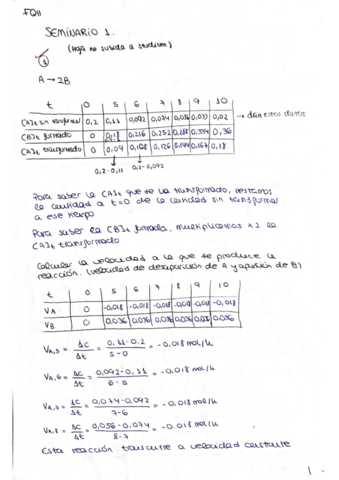 FQII
SEMINARIO 1.
(Hoja no subida a studium)
1
A → 2B
t 0 5 6 7 8 9 10
[A]t sin transformar 0,2 0,11 0,092 0,074 0,056 0,02 → dan estos datos
[B]t formado 0 0,18 0,216 0,252 0,288 0,36
[A]t transformado 0 0,09 0,108 0,126 0,144 0,18
0,2-0,11 0,2-0,092
Para saber la [A]t que se ha transformado, restamos
la cantidad a t=0 de la cantidad sin transformar
a ese tiempo
Para saber la [B]t formada, multiplicamos x2 la
[A]t transformado
Calcular la velocidad a la que se produce la
reacción. (velocidad de desaparición de A y aparición de B)
t 0 5 6 7 8 9 10
VA 0 -0,018 -0,018 -0,018 -0,018 -0,018 -0,018
VB 0 0,036 0,036 0,036 0,036 0,036 0,036
VA,5 = ΔC/Δt = 0,11-0,2/5-0 = -0,018 mol/h
VA,6 = ΔC/Δt = 0,092-0,11/6-5 = -0,018 mol/h
VA,7 = ΔC/Δt = 0,074-0,092/7-6 = -0,018 mol/h
VA,8 = ΔC/Δt = 0,056-0,074/8-7 = -0,018 mol/h
Esta reacción transcurre a velocidad constante
1